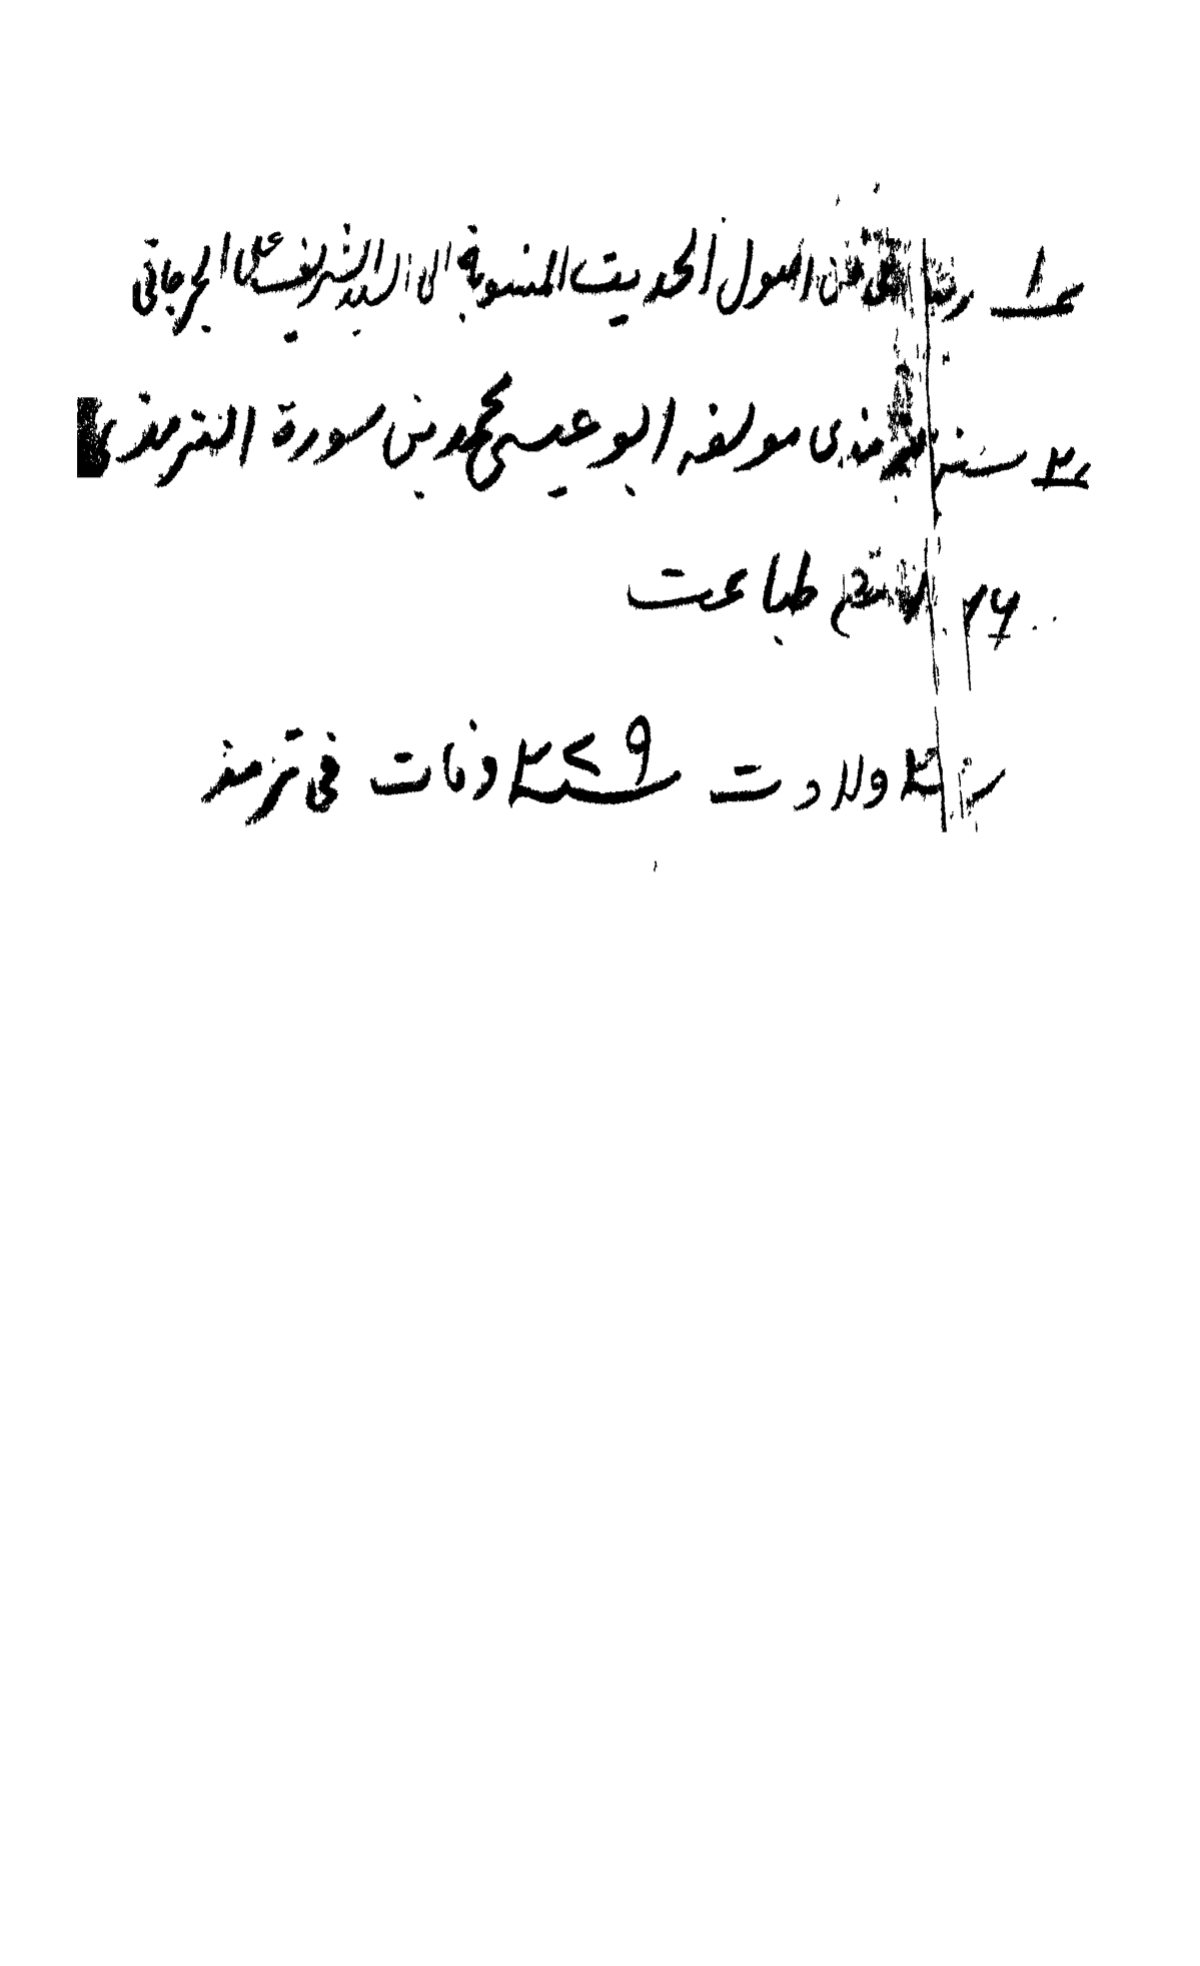 ۱ فی فن اصول الحدیث المنسوبة الی السید الشریف علی الجرجانی
۲ سنن ترمذی مولفہ ابو عیسی محمد بن سورة الترمذی
طباعت
ولادت ۲۷۹ وفات فی ترمذ